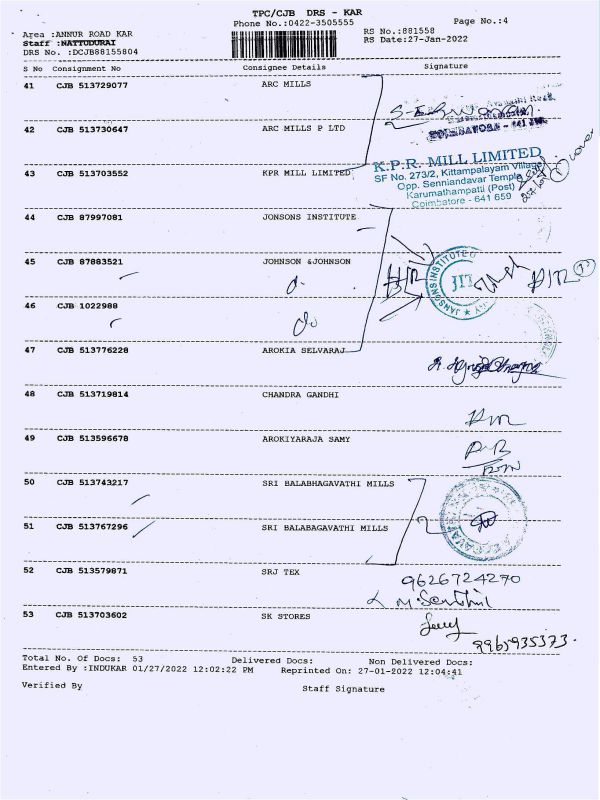 TPC/CJB DRS - KAR
Phone No.:0422-3505555
Page No.:4
Area :ANNUR ROAD KAR
RS No.:881558
Staff :NATTUDURAI
RS Date:27-Jan-2022
DRS No. :DCJB88155804
S No Consignment No Consignee Details Signature
41 CJB 513729077 ARC MILLS
42 CJB 513730647 ARC MILLS P LTD
COIMBATORE - 641
K.P.R. MILL LIMITED
43 CJB 513703552 KPR MILL LIMITED
SF No. 273/2, Kittampalayam Village
Opp. Senniandavar Temple
Karumathampatti (Post)
Coimbatore - 641 659
44 CJB 87997081 JONSONS INSTITUTE
45 CJB 87883521 JOHNSON &JOHNSON
JANSONS INSTITUTE O
JIT
46 CJB 1022988
Do
47 CJB 513776228 AROKIA SELVARAJ
48 CJB 513719814 CHANDRA GANDHI
49 CJB 513596678 AROKIYARAJA SAMY
50 CJB 513743217 SRI BALABHAGAVATHI MILLS
51 CJB 513767296 SRI BALABAGAVATHI MILLS
52 CJB 513579871 SRJ TEX
9626724270
M. Senthil
53 CJB 513703602 SK STORES
9965935373.
Total No. Of Docs: 53 Delivered Docs: Non Delivered Docs:
Entered By :INDUKAR 01/27/2022 12:02:22 PM Reprinted On: 27-01-2022 12:04:41
Verified By Staff Signature